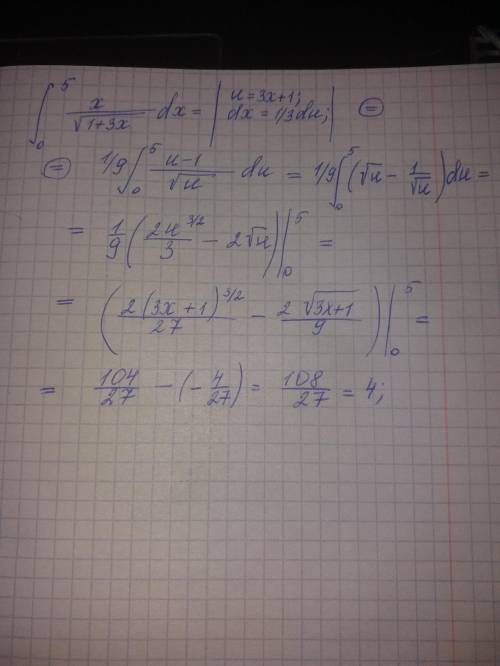 ∫₀⁵ x/√(1+3x) dx = | u = 3x+1; dx = 1/3 du; | ⊜
⊜ 1/9 ∫₀⁵ (u-1)/√u du = 1/9 ∫₀⁵ (√u - 1/√u) du =
= 1/9 (2u^(3/2)/3 - 2√u) |₀⁵ =
= (2(3x+1)^(3/2)/27 - 2√(3x+1)/9) |₀⁵ =
= 104/27 - (-4/27) = 108/27 = 4;